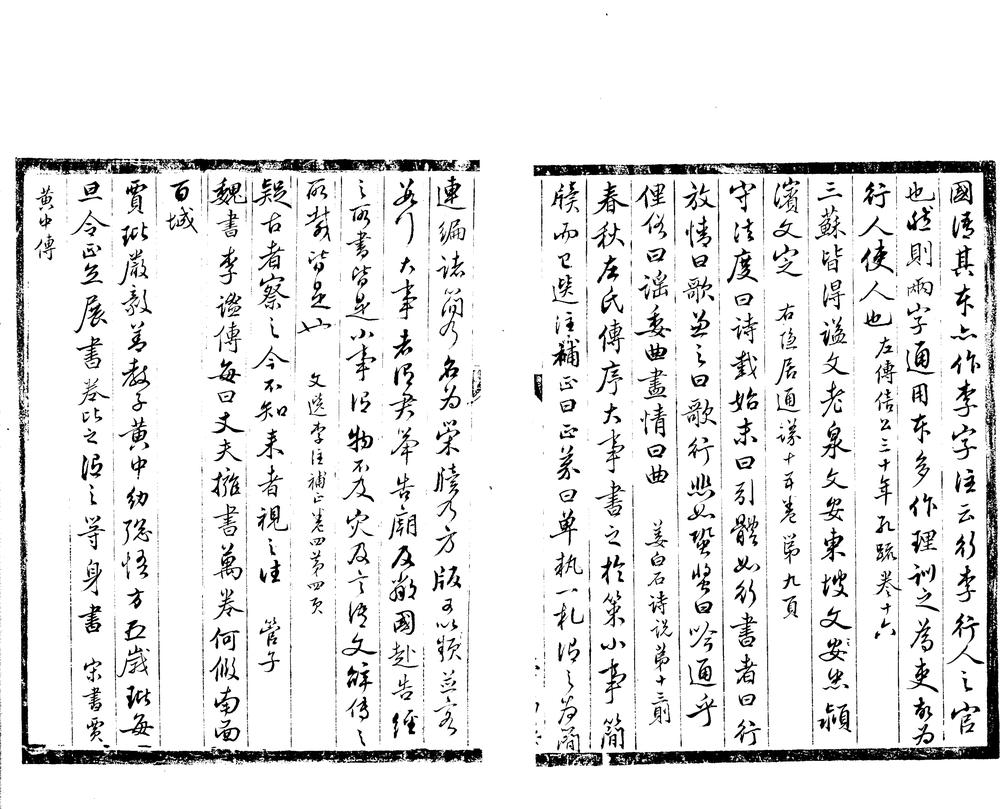 國語其本亦作李字注云行李行人之官
也然則兩字通用本多作理訓之為吏故為
行人使人也 左傳僖公三十年孔疏卷十六
三蘇皆得謚文老泉文安東坡文忠潁
濱文定 右隱居通議十五卷第九頁
守法度曰詩載始末曰引體如行書者曰行
放情曰歌兼之曰歌行悲如蛩螿曰吟通乎
俚俗曰謠委曲盡情曰曲 姜白石詩說第十三則
春秋左氏傳序大事書之於策小事簡
牘而已 選注補正曰正義曰單執一札謂之為簡
連編諸簡乃名為策牘乃方版可以類並容
若行大事者謂君舉告廟及鄰國赴告經
之所書皆是小事謂物不及灾及言語文辭傳之
所載皆是也 文選李注補正卷四第四頁
疑古者察之今不知來者視之往 管子
魏書李謐傳每曰丈夫擁書萬卷何假南面
百城
賈玭嚴毅善教子黃中幼聰悟方五歲玭每
旦令正立展書卷比之謂之等身書 宋書賈
黃中傳